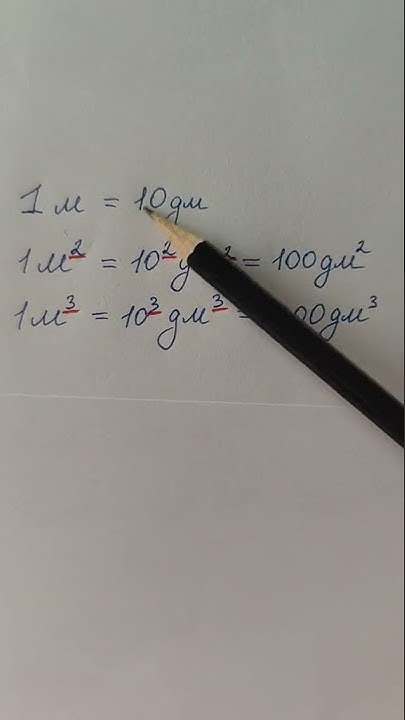 1 м = 10 дм
1 м² = 10² д ² = 100 дм²
1 м³ = 10³ дм³ = 00 дм³